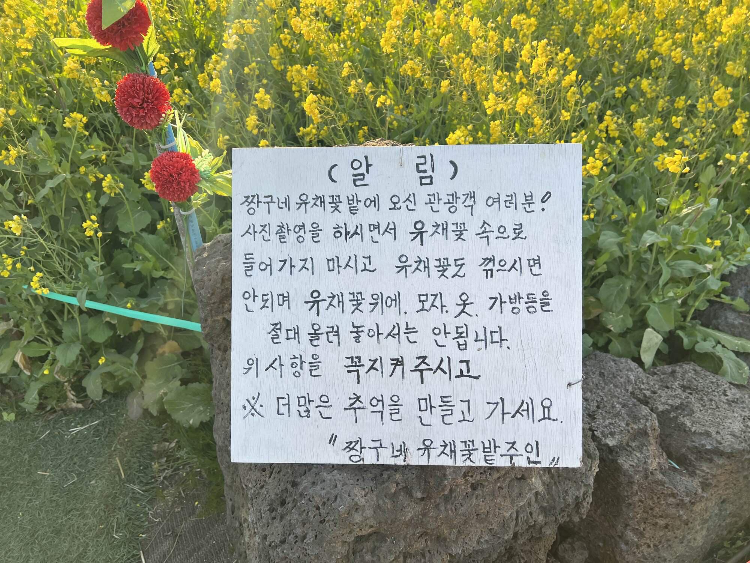 (알 림)
짱구네 유채꽃밭에 오신 관광객 여러분!
사진촬영을 하시면서 유채꽃 속으로
들어가지 마시고 유채꽃도 꺾으시면
안되며 유채꽃위에. 모자. 옷. 가방등을
절대 올려 놓아서는 안됩니다.
위사항을 꼭지켜주시고
※ 더많은 추억을 만들고 가세요.
"짱구네 유채꽃밭주인"